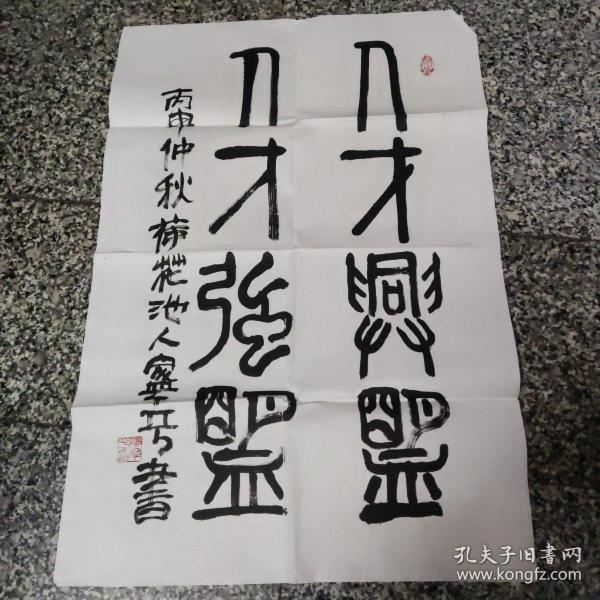 人才興盟
人才强盟
丙申仲秋池人寧巧書
孔夫子旧书网
www.kongfz.com